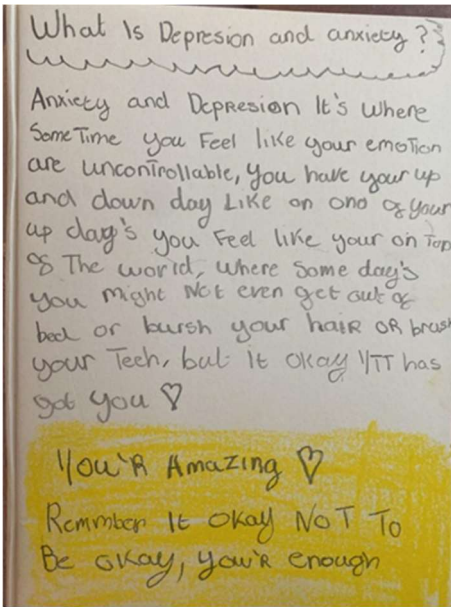 What Is Depresion and anxiety?
Anxiety and Depresion It's where
Some Time you Feel like your emotion
are uncontrollable, you have your up
and down day Like on one of your
up day's you Feel like your on Top
of The world, where Some day's
you might Not even get out of
bed or bursh your haiR oR brush
your Teeh, but it okay YTT has
got you ♡
You'R Amazing ♡
Remmber It okay NoT To
Be okay, you'R enough